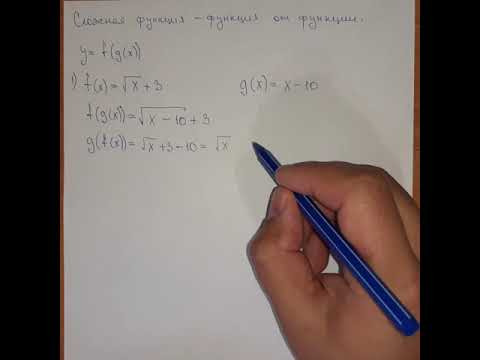 Сложная функция – функция от функции.
y = f(g(x))
1) f(x) = √x + 3 g(x) = x – 10
f(g(x)) = √(x – 10) + 3
g(f(x)) = √x + 3 – 10 = √x